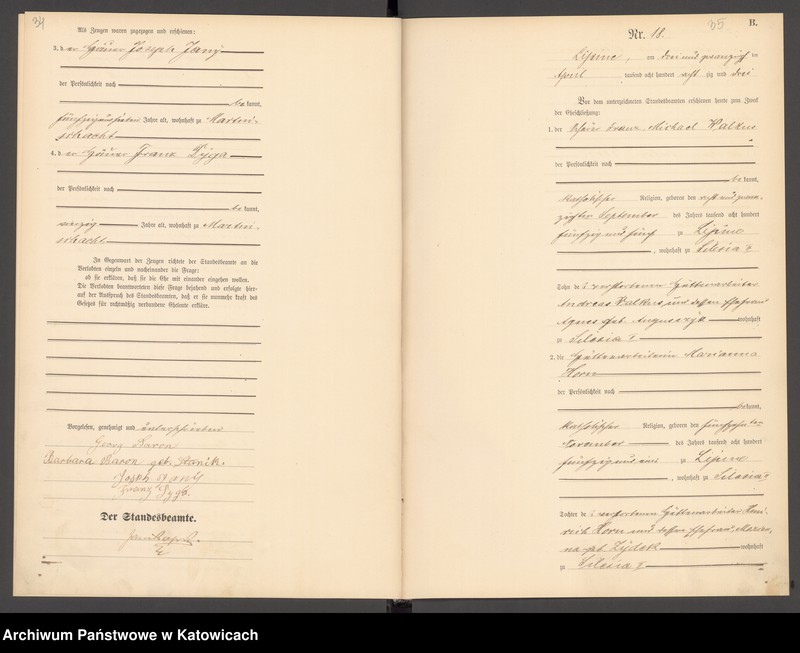 34
Als Zeugen waren zugezogen und erschienen:
3. der Häuer Joseph Jany
der Persönlichkeit nach
be kannt,
fünfzig Jahre alt, wohnhaft zu Martin-
schacht
4. der Häuer Franz Dyga
der Persönlichkeit nach
be kannt,
vierzig Jahre alt, wohnhaft zu Martin-
schacht
In Gegenwart der Zeugen richtete der Standesbeamte an die
Verlobten einzeln und nacheinander die Frage:
ob sie erklären, daß sie die Ehe mit einander eingehen wollen.
Die Verlobten beantworteten diese Frage bejahend und erfolgte hier-
auf der Ausspruch des Standesbeamten, daß er sie nunmehr kraft des
Gesetzes für rechtmäßig verbundene Eheleute erkläre.
Vorgelesen, genehmigt und unterschrieben
Georg Baron
Barbara Baron geb.
Joseph Jany
Franz Dyga.
Der Standesbeamte.
35
B.
Nr. 18.
Lipine, am drei und zwanzigsten
April tausend acht hundert acht zig und drei
Vor dem unterzeichneten Standesbeamten erschienen heute zum Zweck
der Eheschließung:
1. der Häuer Franz Michael Walkus
der Persönlichkeit nach
be kannt,
katholischer Religion, geboren den acht und zwan-
zigsten September des Jahres tausend acht hundert
fünfzig und fünf zu Lipine
, wohnhaft zu Silesia
Sohn des verstorbenen Hüttenarbeiter
Andreas Walkus und dessen Ehefrau
Agnes geb. wohnhaft
zu Silesia
2. die Hüttenarbeiterin Marianna
Horn
der Persönlichkeit nach
bekannt,
katholischer Religion, geboren den fünfzehnten
November des Jahres tausend acht hundert
fünfzig und zu Lipine
, wohnhaft zu Silesia
Tochter des verstorbenen Hüttenarbeiter Hein-
rich Horn und dessen Ehefrau Marian-
na geb. wohnhaft
zu Silesia
Archiwum Państwowe w Katowicach